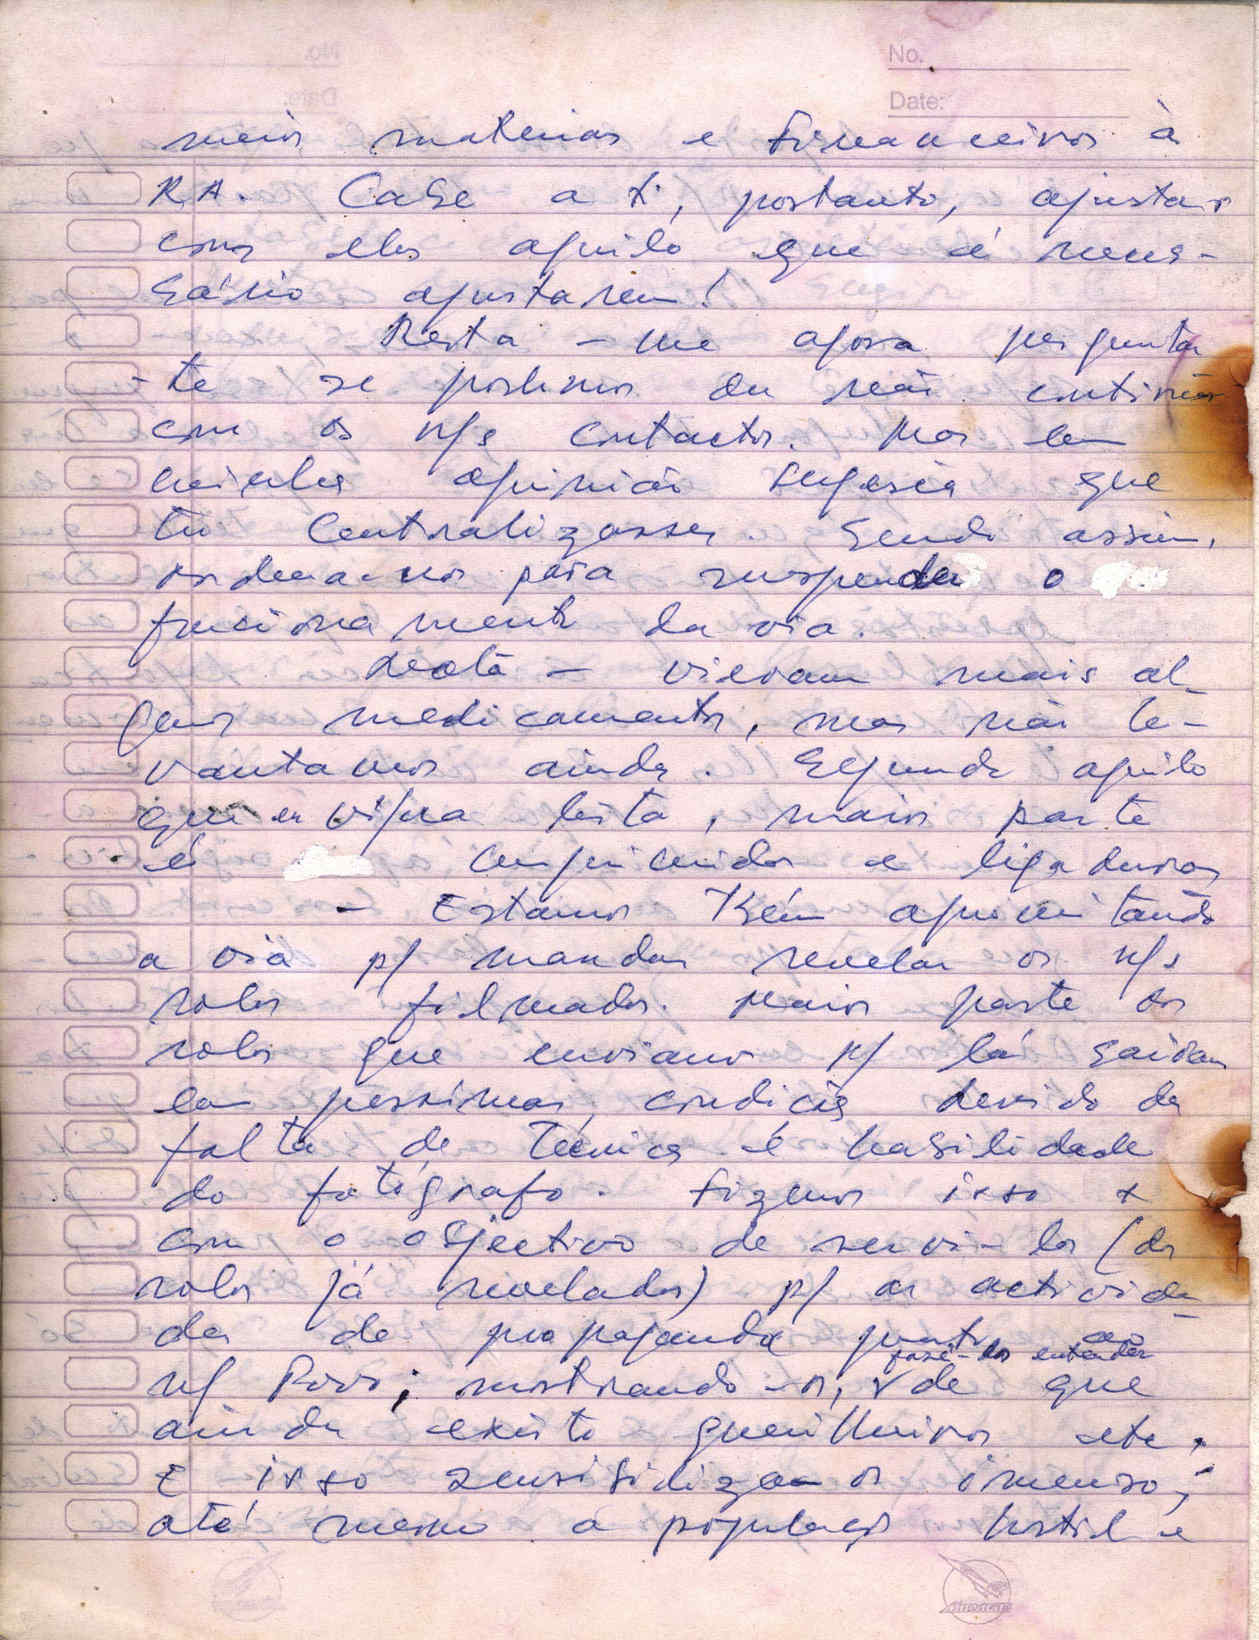 No.
Date:
meios materias e financeiros à
RA. Cabe a ti, portanto, ajustar
com eles aquilo que é neces-
sário ajustarem!
Resta-me agora pergunta
-te se podemos ou não continuar
com os n/s contactos. Mas em
minha opinião sugeria que
tu centralizasses. Sendo assim,
ordena-nos para suspender o
funcionamento da via.
Nota - vieram mais al-
guns medicamentos, mas não le-
vantamos ainda. Segundo aquilo
que vi na lista, maior parte
é comprimidos e ligaduras
- Estamos tbém aproveitando
a via p/ mandar revelar os n/s
rolos filmados. Maior parte dos
rolos que enviamos p/ lá sairam
em pessimas condições devido da
falta de técnica e habilidade
do fotógrafo. Fizemos isso
com o objectivo de servi-los (os
rolos já revelados) p/ as activida-
des de propaganda junto ao
fazê-los entender
n/ Povo; mostrando-os, de que
ainda existe guerrilheiros etc.
E isso sensibiliza-os imenso;
até mesmo a população hostil e